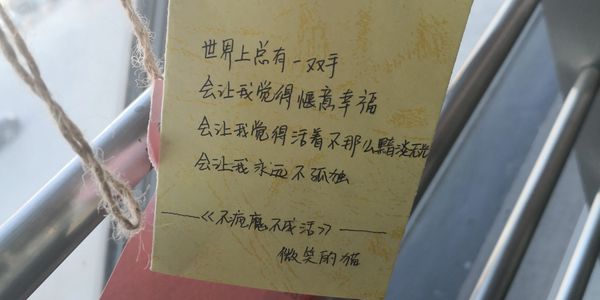 世界上总有一双手
会让我觉得惬意幸福
会让我觉得活着不那么黯淡无光
会让我永远不孤独
——《不疯魔不成活》——
微笑的猫